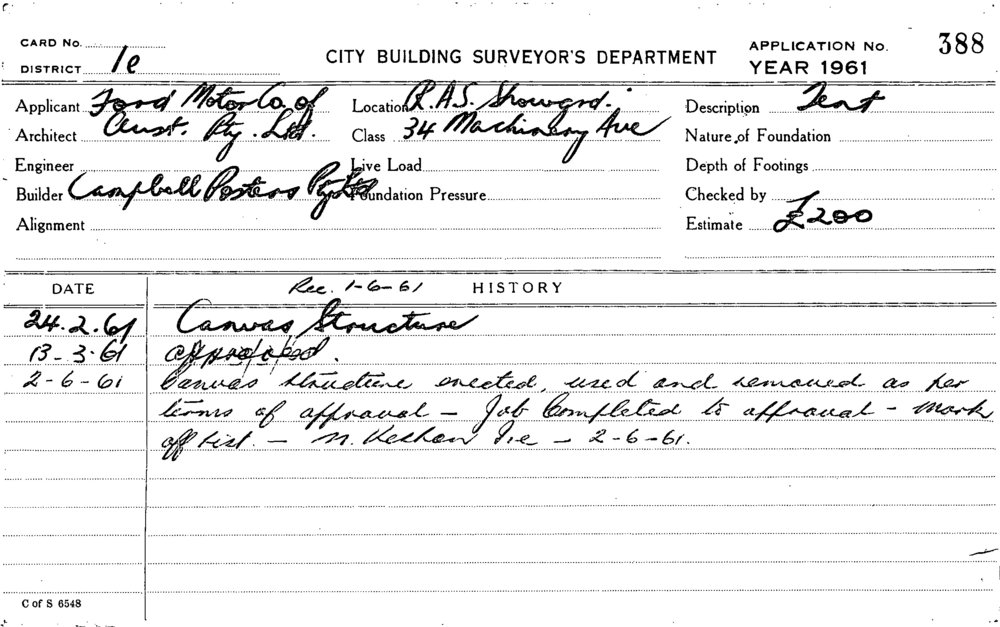 CARD No.
DISTRICT 1e
CITY BUILDING SURVEYOR'S DEPARTMENT
APPLICATION No. 388
YEAR 1961
Applicant Ford Motor Co. of
Location R.A.S. Showgrd.
Description Tent
Architect Aust. Pty. Ltd.
Class 34 Machinery Ave
Nature of Foundation
Engineer
Live Load
Depth of Footings
Builder Campbell Posters Pty Ltd
Foundation Pressure
Checked by
Alignment
Estimate £200
DATE
Rec. 1-6-61 HISTORY
24.2.61 Canvas Structure
13-3-61 approved.
2-6-61 Canvas structure erected, used and removed as per
terms of approval – Job Completed to approval – mark
off List. – 2-6-61.
C of S 6548